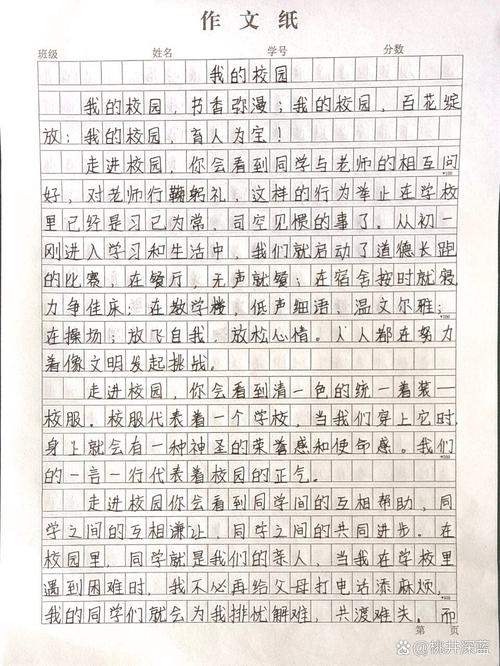 作文纸
班级 姓名 学号 分数
我的校园
我的校园，书香弥漫；我的校园，百花绽
放；我的校园，育人为宝！
走进校园，你会看到同学与老师的相互问
好，对老师行鞠躬礼，这样的行为举止在学校
里已经是习已为常，司空见惯的事了。从初一
刚进入学习和生活中，我们就启动了道德长跑
的比赛，在餐厅，无声就餐；在宿舍按时就寝
力争佳床；在教学楼，低声细语，温文尔雅；
在操场；放飞自我，放松心情。人人都在努力
着像文明发起挑战。
走进校园，你会看到清一色的统一着装—
校服。校服代表着一个学校，当我们穿上它时，
身上就会有一种神圣的荣誉感和使命感。我们
的一言一行代表着校园的正气。
走进校园你会看到同学间的互相帮助，同
学之间的互相谦让，同学之间的共同进步。在
校园里，同学就是我们的亲人，当我在学校里
遇到困难时，我不必再给父母打电话添麻烦，
我的同学们就会为我排忧解难，共渡难关。而
第 页
@桃井深蓝